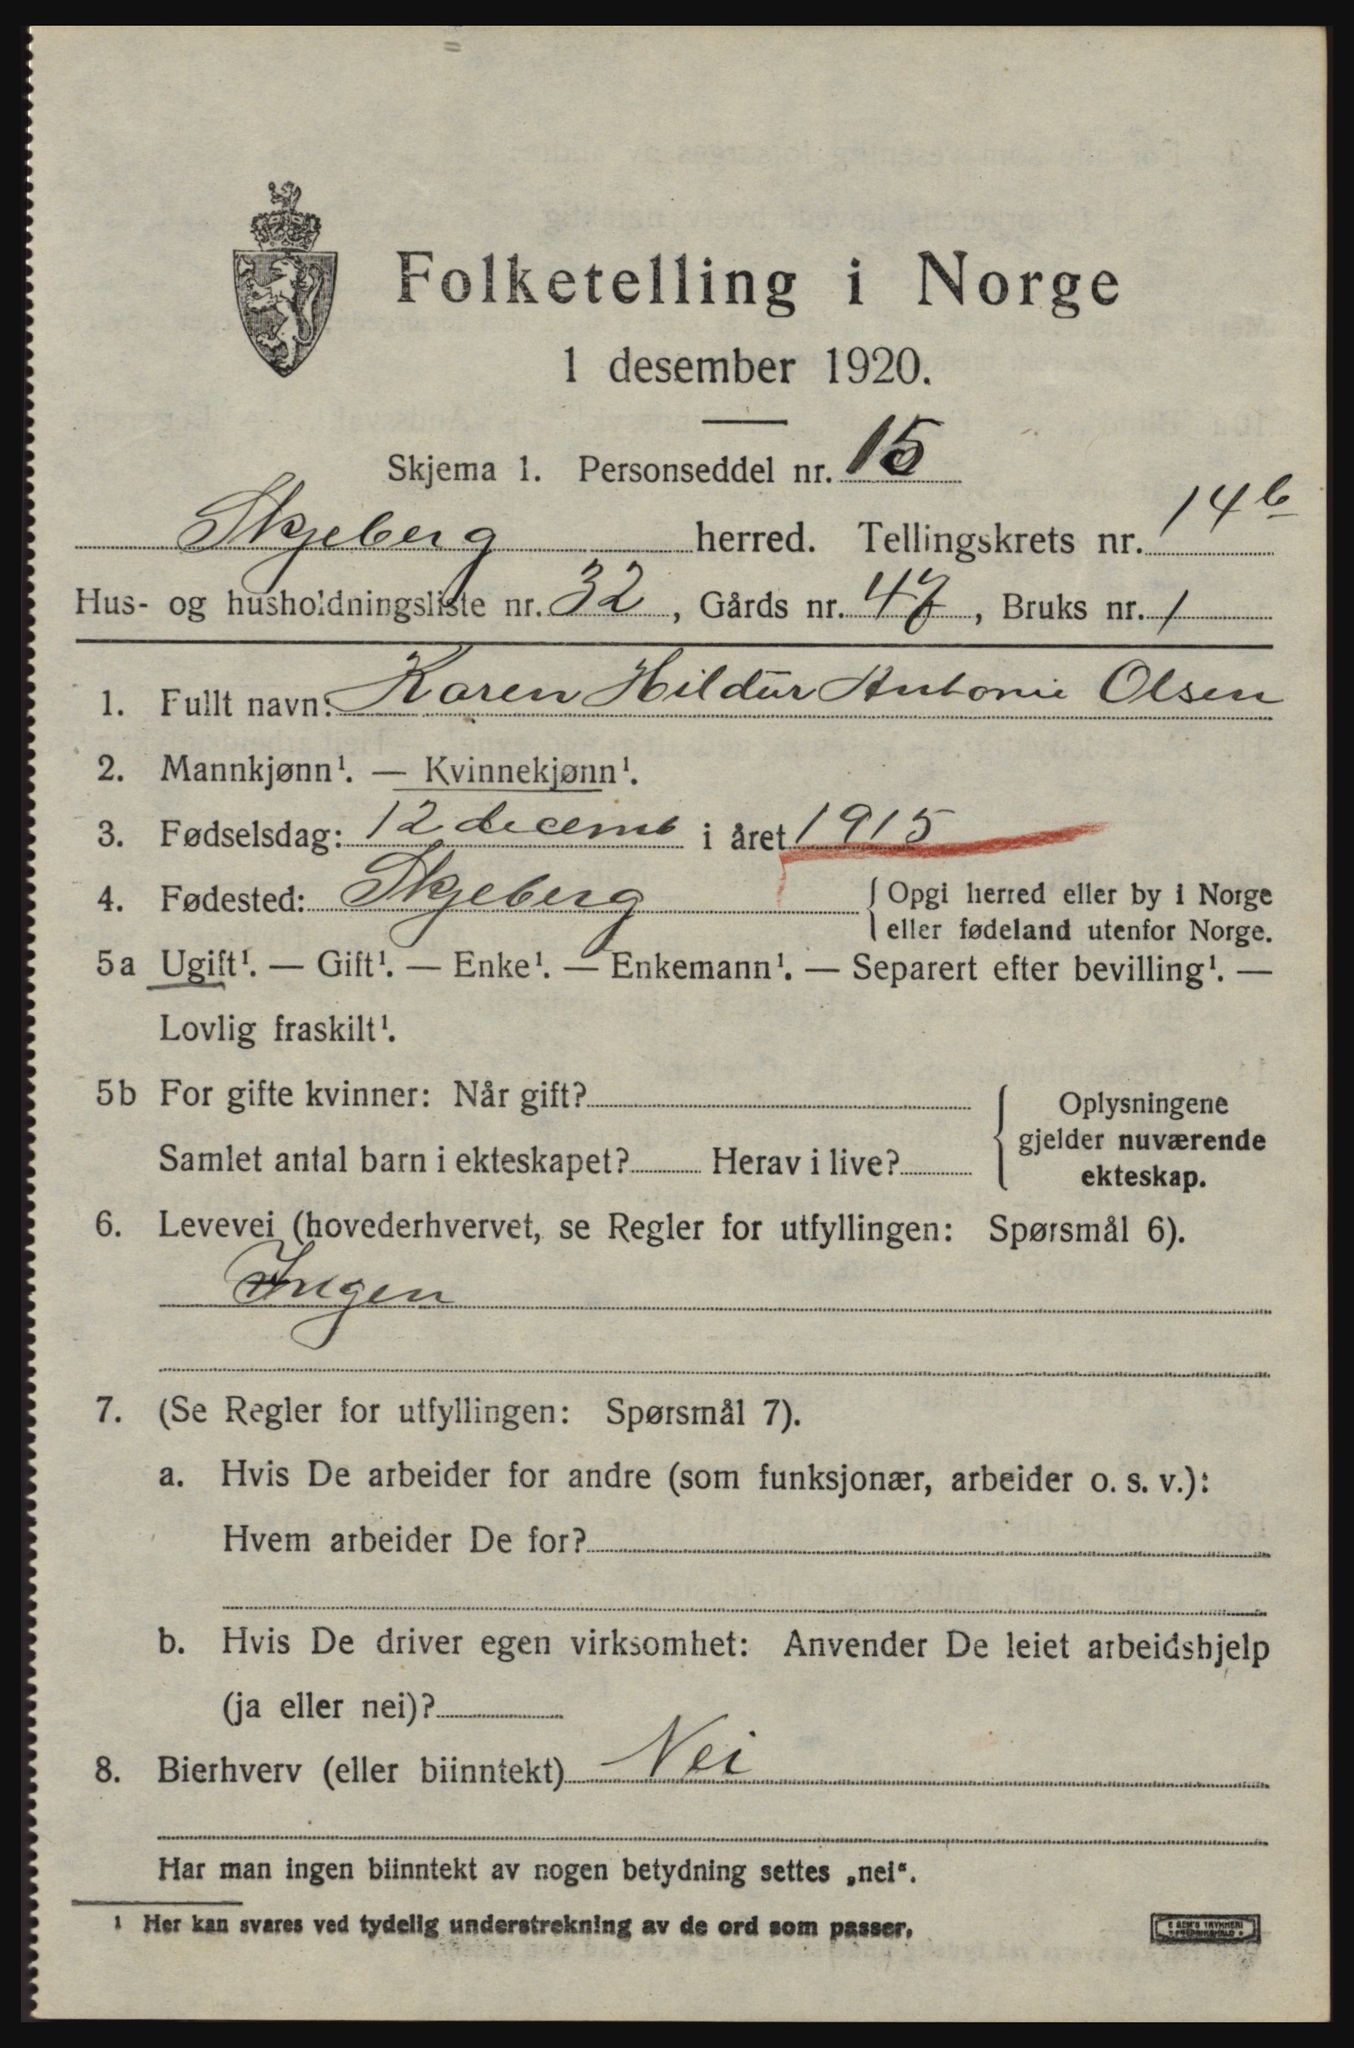 Folketelling i Norge
1 desember 1920.
Skjema 1. Personseddel nr. 15
Skjeberg herred. Tellingskrets nr. 14b
Hus- og husholdningsliste nr. 32, Gårds nr. 47, Bruks nr. 1
1. Fullt navn: Karen Hildur Antonie Olsen
2. Mannkjønn¹. — Kvinnekjønn¹.
3. Fødselsdag: 12 decemb i året 1915
4. Fødested: Skjeberg { Opgi herred eller by i Norge
eller fødeland utenfor Norge.
5a Ugift¹. — Gift¹. — Enke¹. — Enkemann¹. — Separert efter bevilling¹. —
Lovlig fraskilt¹.
5b For gifte kvinner: Når gift?
Samlet antal barn i ekteskapet? Herav i live?
Oplysningene
gjelder nuværende
ekteskap.
6. Levevei (hovederhvervet, se Regler for utfyllingen: Spørsmål 6).
Ingen
7. (Se Regler for utfyllingen: Spørsmål 7).
a. Hvis De arbeider for andre (som funksjonær, arbeider o. s. v.):
Hvem arbeider De for?
b. Hvis De driver egen virksomhet: Anvender De leiet arbeidshjelp
(ja eller nei)?
8. Bierhverv (eller biinntekt) Nei
Har man ingen biinntekt av nogen betydning settes „nei“.
¹ Her kan svares ved tydelig understrekning av de ord som passer.